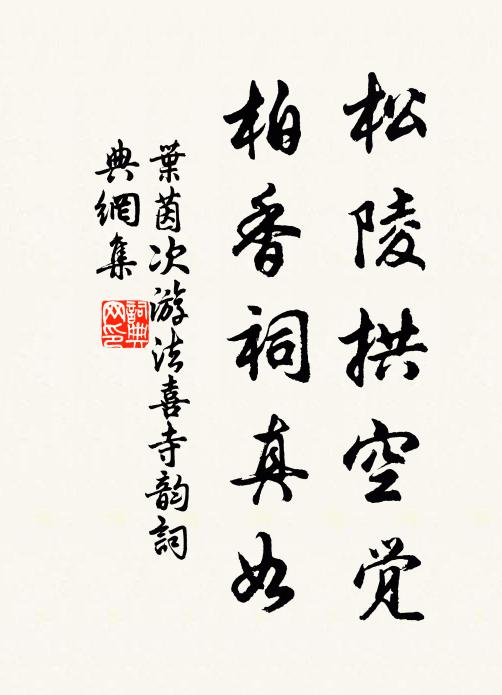 松陵拱空觉
柏香祠真如
葉茵次游法喜寺韵詞
典網集
詞典网印